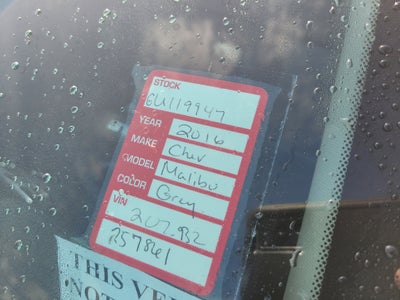 STOCK
GU119947
YEAR 2016
MAKE Chev
MODEL Malibu
COLOR Grey
VIN 207.932
257861
THIS VE
NOT